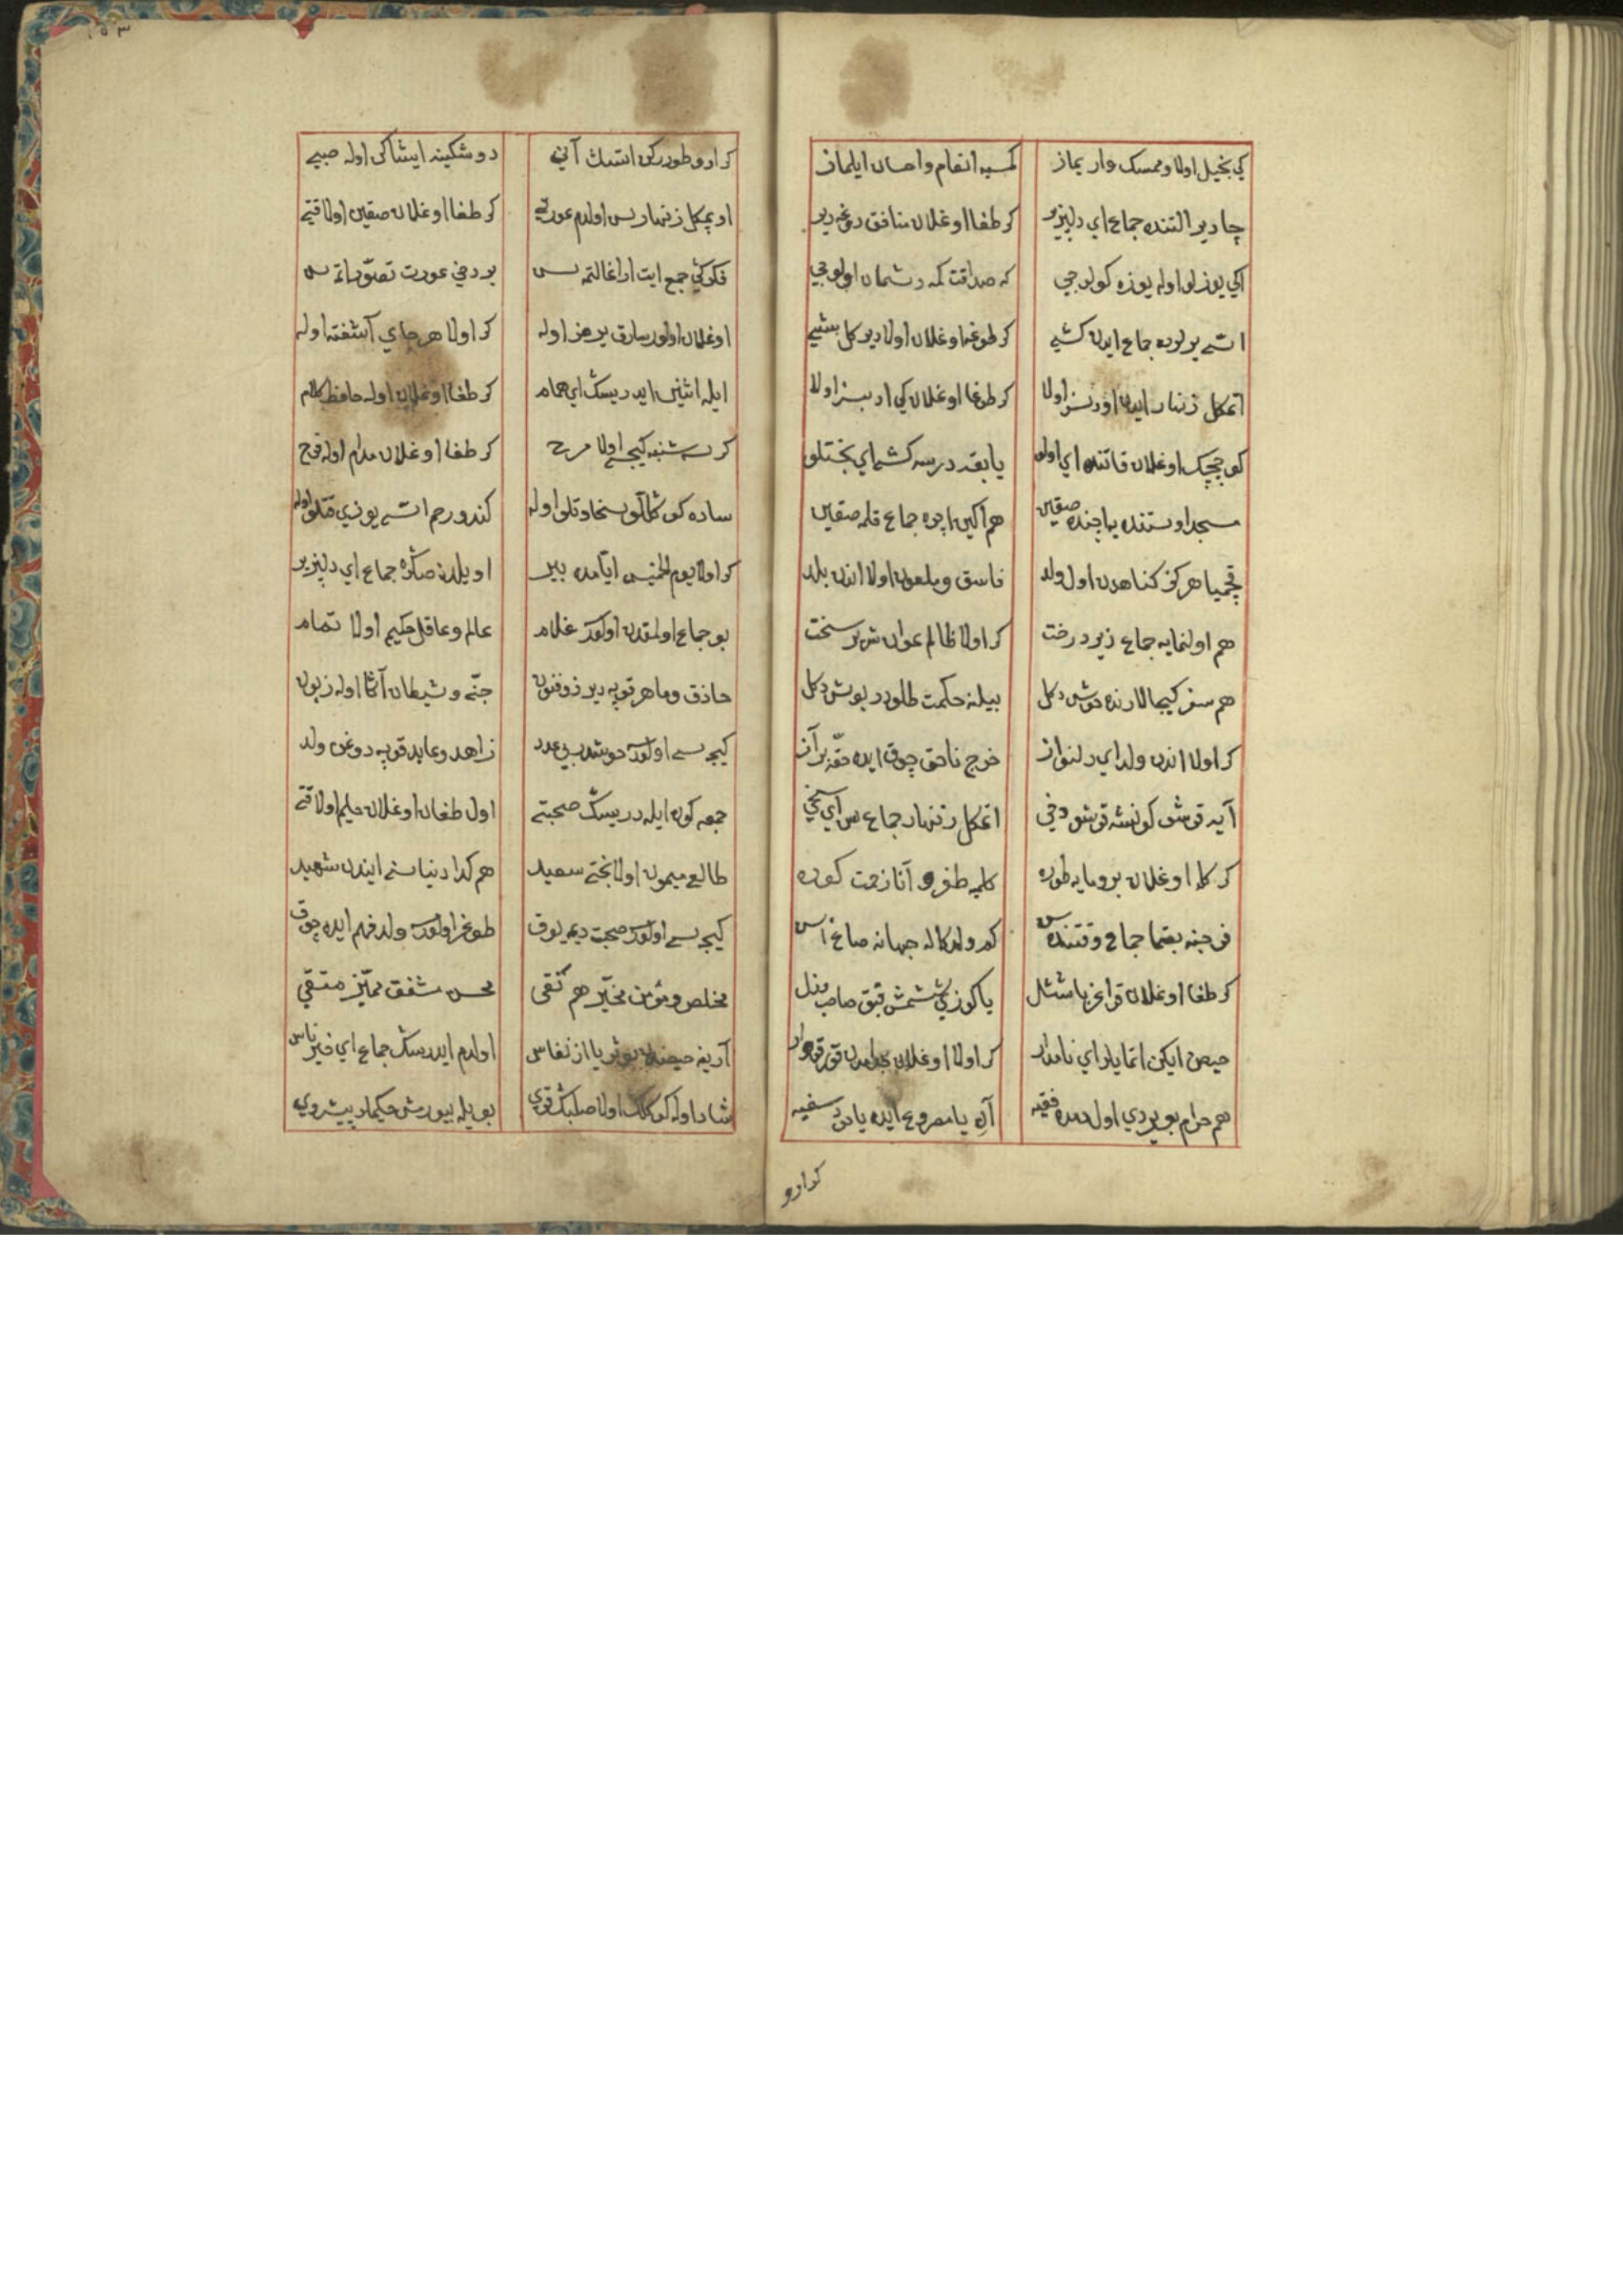 كي بخيل اولا و ممسك وار يماز كمسيه انعام و احسان ايلماز
چادير التنده جماع اي دلپذير كر طغا اوغلان منافق دوغه دير
اكي يوزلو اوله يوزه كولوجي كه صداقت كمه دشمان اولوجي
اتسه يولوده جماع ايدن كشي كر طوغه اوغلان اولا ديو كل بشي
اتمكل زنهار ايدن اولا كر طوغا اوغلان كي اولا
كوچجك اوغلان قاتنده اي اولو يا بقدر درسه كشي اي بختلو
مسجد اوستنده يا چنده صقين هم اكين اچره جماع قلمه صقين
قچميا هركز كناهدن اول ولد فاسق و ملعون اولا اندن بلد
هم اولنمايه جماع زير درخت كر اولا ظالم عوان شرير سخت
هم سفر كيجالارنده خوش دكل بيلنه حكمت طلودر بوش دكل
كر اولا اندن ولد اي دلنواز خرج ناحق چوق ايده حقه بر آز
آيه قرشو كونشه قرشو دخي اتمكل زنهار جماع س اي سخي
كر كله اوغلان بروما يه طوره كلميه طفره آنا زحمت كوره
فرجينه بقما جماع وقتنده س كور ولد كاله جهانه صاغ اس
كر طغا اوغلان يا كوزي ششمش قبق
حيض ايكن اتمايلر اي نامدار كر اولا اوغلان جذامدن قورقو وار
هم حرام بويوردي اول دمده فقيه آره يا مصروع ايده يا دني سفيه
كرارو
١٥٣
كرارو طوررکن اتسك آني دوشكينه ايشاكن اوله صبي
اويمكل زنهار بس اولدم عورتي كر طغا اوغلان صقين اولا قتي
فكركي جمع ايت اراغالتمه بس بر دخي عورت تصور اتمه س
اوغلان اولور سارق يرمز اوله كر اولا هر جاي آشفته اوله
ايله اثنين ايدريسك اي همام كر طغا اوغلان اوله حافظ كلام
كر سه شنبه كيجه سي اولا مرح كر طغا اوغلان مدام اوله فرح
ساده كوكللو سخاوتلو اوله كندو رحم اتسه يوزي قتلو اوله
كر اولا يوم الخميس ايامده بير اويلدن صكره جماع اي دلپذير
بو جماع اولمقدن اولور غلام عالم و عاقل حكيم اولا تمام
حاذق و ماهر قوپه دير ذو فنون جني و شيطان آنكا اوله زبون
كيجه سي اولور خوشدر بي عدد زاهد و عابد قوپه دوغن ولد
جمعه كون ايله دريسك صحبتي اول طغان اوغلان حليم اولا قتي
طالع ميمون اولا بختي سعيد هم كدا دنيا سني ايندن شهيد
كيجه سي اولور صحبت ديمه يوق طوغر اولور ولد فهم ايده چوق
مخلص و مؤمن مخير هم تقي محسن مشفق مميز متقي
آرينه حيضدن عورت يا از نفاس اولدم ايدرسك جماع اي خير ناس
شاد اوله كوكلك اولا صلبك قوي بويله بيورمش حكيمار پيشروي